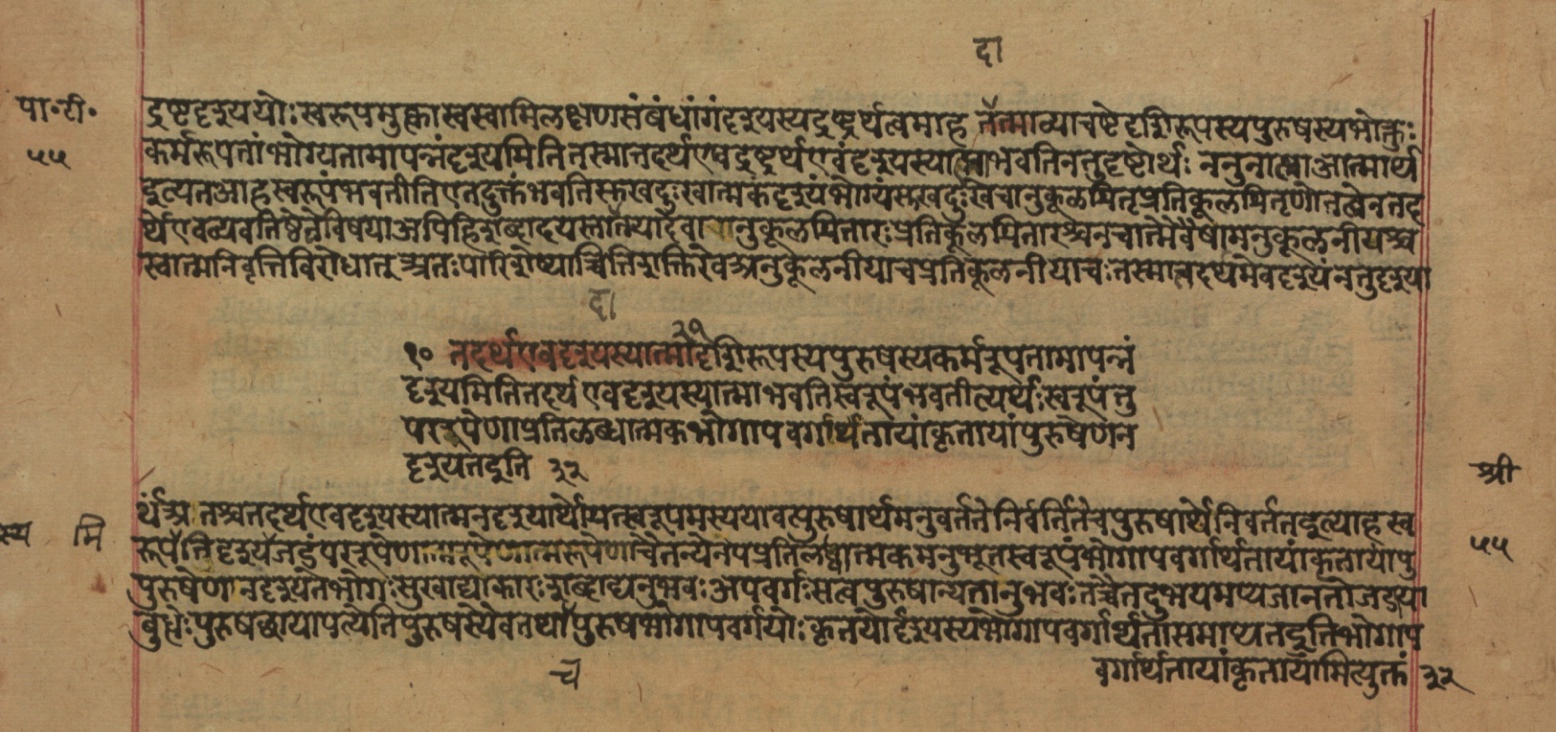 दा
पा॰टी॰ द्रष्टृदृश्ययोः स्वरूपमुक्त्वा स्वस्वामिलक्षणसंबंधांगंदृश्यस्यद्रष्ट्रर्थत्वमाह तंत्माव्याचष्टेदृशिरूपस्यपुरुषस्यभोक्तुः
५५ कर्मरूपतांभोग्यतामापन्नंदृश्यमितितस्मात्तदर्थएषद्रष्ट्रर्थएवंदृश्यस्यात्माभवतिनतुदृष्टोर्थः ननुनात्माआत्मार्थ
इत्यतआहस्वरूपंभवतीतिएतदुक्तंभवतिसुखदुःखात्मकंदृश्यंभोग्यंसुखदुःखेचानुकूलयितृप्रतिकूलयितृणोतत्वेनतद
र्थेएवव्यवतिष्ठेतेविषयाअपिहिशब्दादयस्तादात्म्यादेवानुकूलयितारःप्रतिकूलयितारश्चनचात्मैवैषामनुकूलनीयश्च
स्वात्मनिवृत्तिविरोधात् अतःपारिशेष्याच्चितिशक्तिरेवअनुकूलनीयाचप्रतिकूलनीयाचःतस्मात्तदर्थमेवदृश्यंनतुदृश्या
दा
१० तदर्थएवदृश्यस्यात्मा२१दृशिरूपस्यपुरुषस्यकर्मरूपतामापन्नं
दृश्यमितितदर्थ एवदृश्यस्यात्माभवतिस्वरूपंभवतीत्यर्थःस्वरूपंतु
पररूपेणाप्रतिळब्धात्मकंभोगापवर्गार्थतायांकृतायांपुरुषेणन
दृश्यतइति ३२
श्री
र्थंअतश्चतदर्थएवदृश्यस्यात्मनदृश्यार्थोयत्स्वरूपमस्ययावत्पुरुषार्थमनुवर्ततेनिर्वर्तितेचपुरुषार्थेनिवर्ततइत्याहस्व
स्य मि रूपंत्वितिदृश्यंजडंपररूपेणात्मरूपेणात्मरूपेणचैतन्येनपप्रतिलब्धात्मकमनुभूतस्वरूपंभोगापवर्गार्थतायांकृतायांपु ५५
पुरुषेणनदृश्यतेभोगःसुखाद्याकारःशब्दाद्यनुभवःअपवर्गःसत्वपुरुषान्यतानुभवःतच्चैतदुभयमप्यजानतोजडाया
बुद्धेःपुरुषछायापत्येतिपुरुषस्यैवतथापुरुषभोगापवर्गयोःकृतयोर्दृश्यस्यभोगापवर्गार्थतासमाप्यतइतिभोगाप
च वर्गार्थतायांकृतायामित्युक्तं ३२